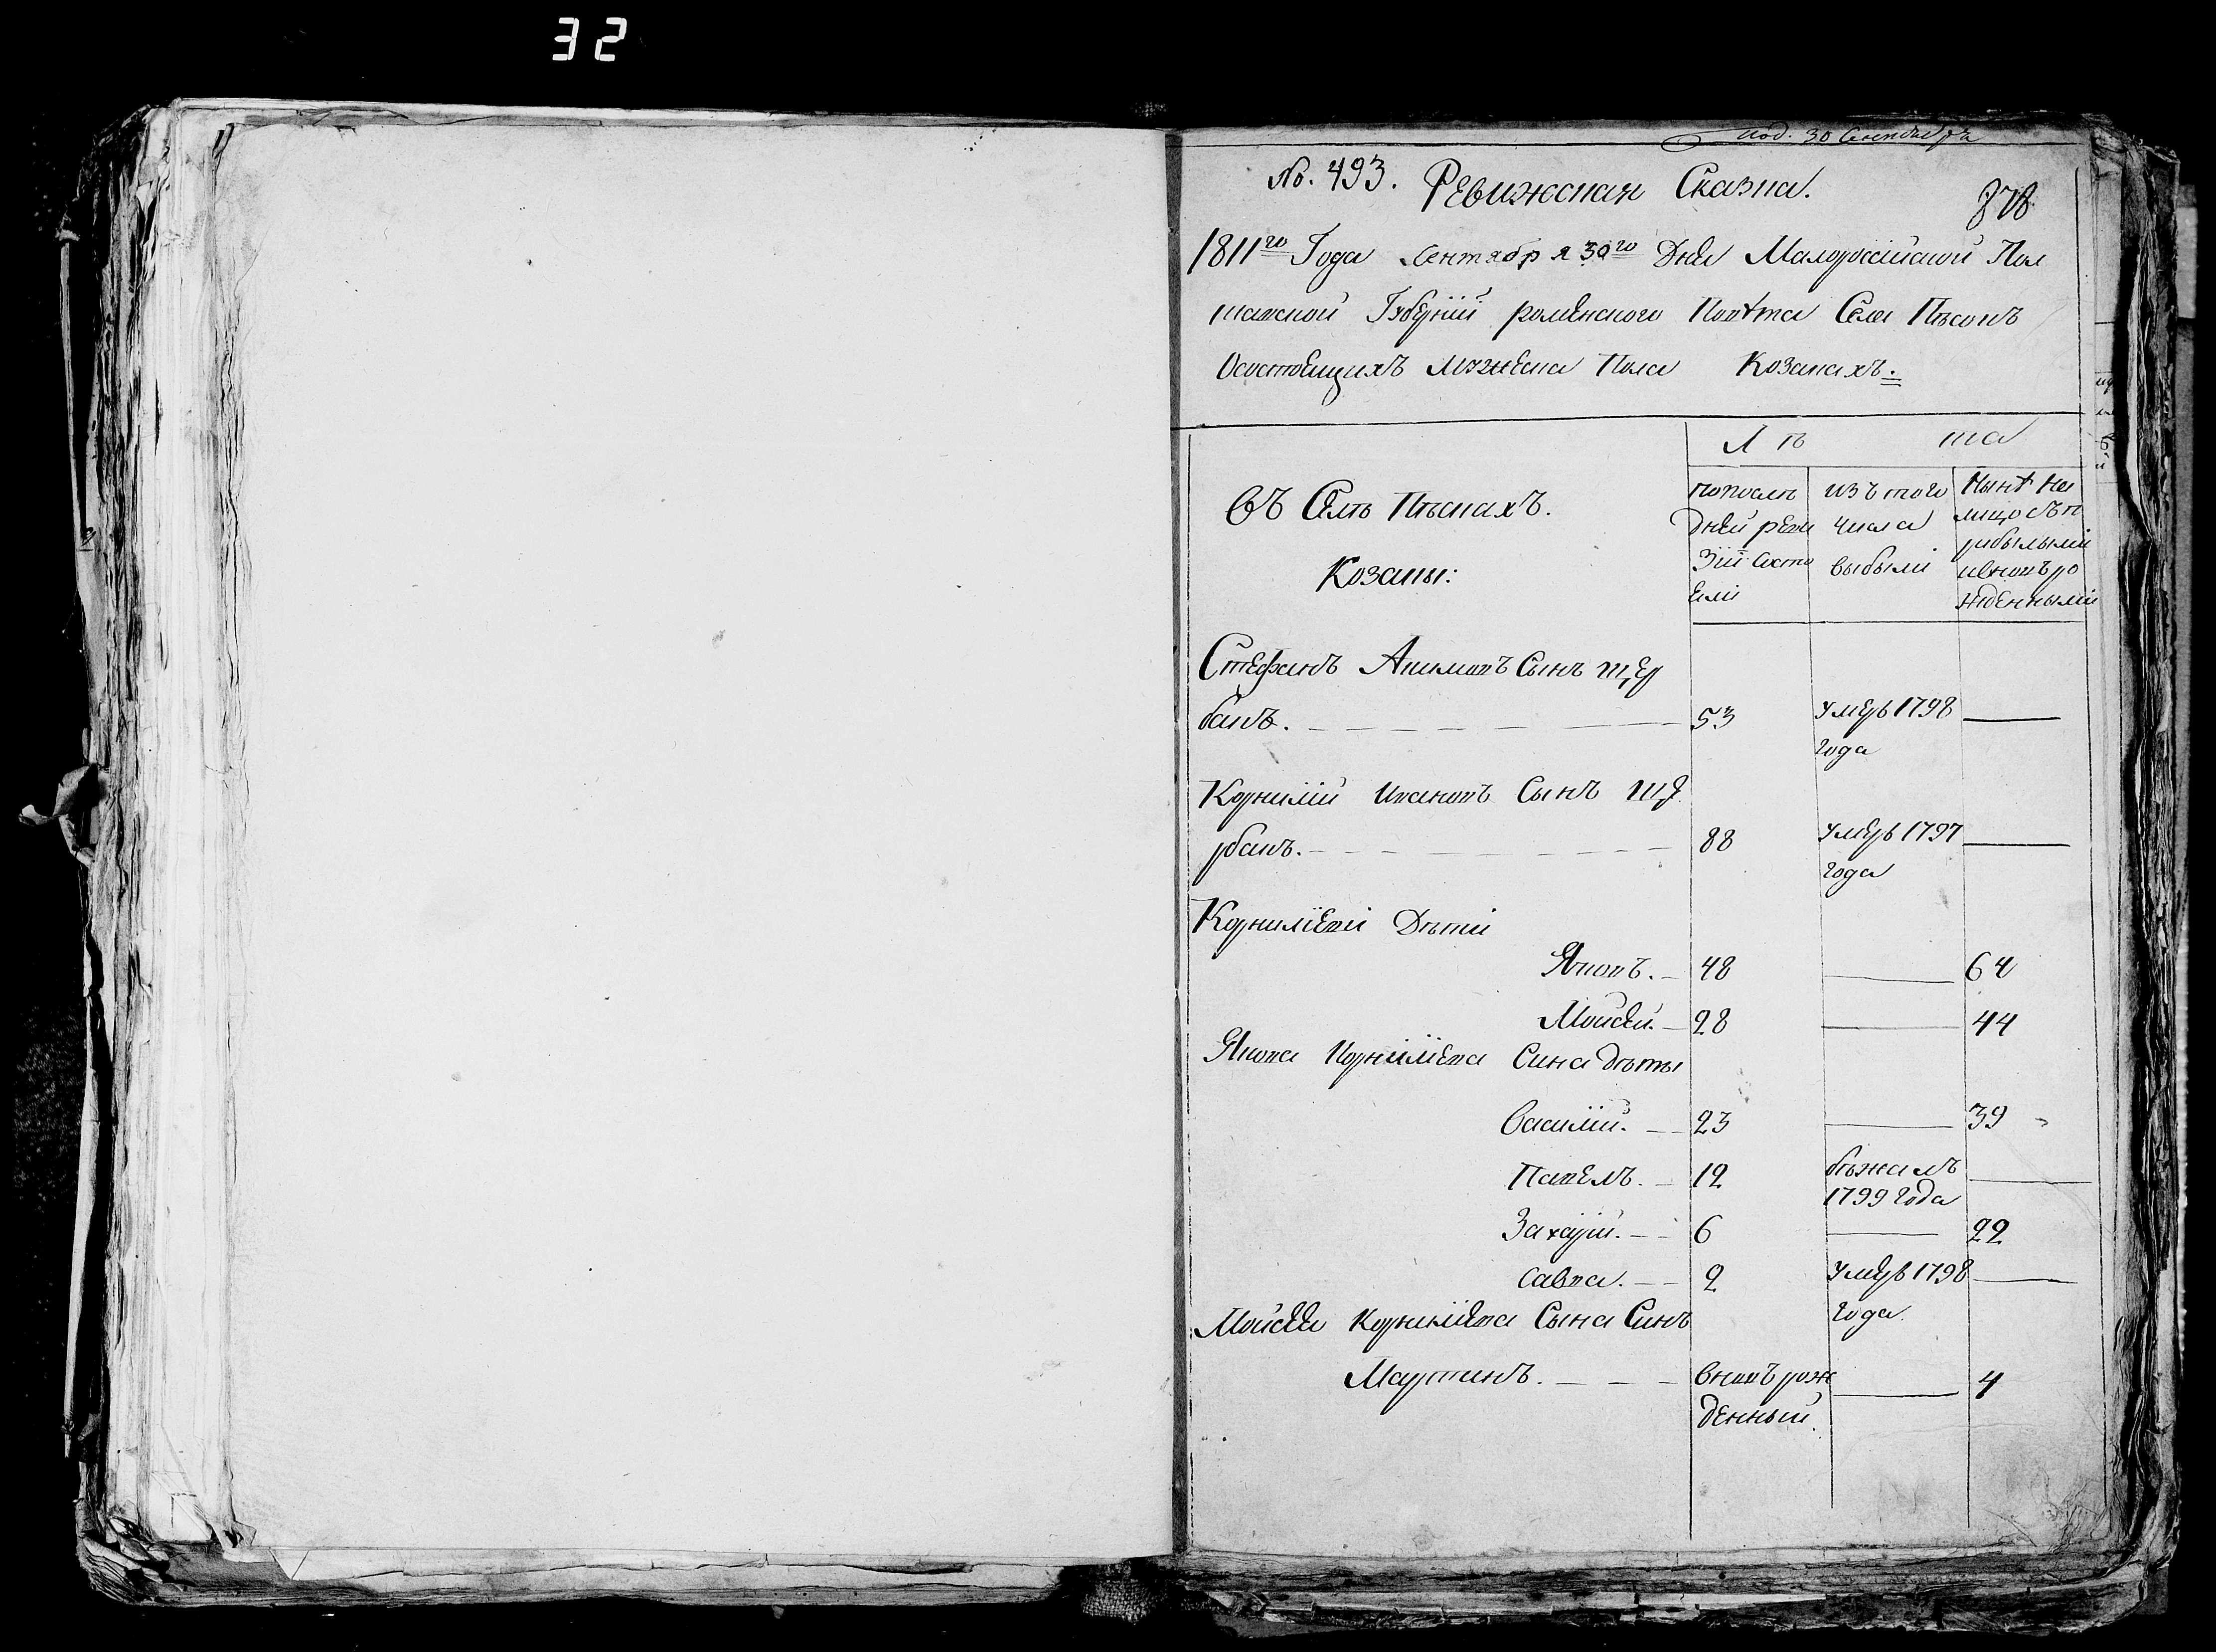 32
под. 30 Сентября
No. 493. Ревижская Сказка.
878
1811го Года Сентября 30го Дня Малоросiйской Пол
тавской Губернiи роменского Повѣта Села Пѣсокъ
Осостоящихъ Мужеска Пола Козакахъ.
Лѣ та
въ Селѣ Пѣскахъ.
Козаки:
попослѣ
дней реви
зiи состо
яли
изъ того
числа
выбыли
Нынѣ на
лицо съ п
рибылыми
ивновь ро
жденными
Стефанъ Акимовъ Сынъ щер
банъ. 53 умеръ 1798
года
Корнилiй Ивановъ Сынъ Ще
рбанъ. 88 умеръ 1797
года
Корнилiеви Дѣти
Яковъ. 48 64
Мойсей. 28 44
Якова Корнилiева Сина дѣты
Василiй. 23 39
Павелъ. 12 бѣжалъ
1799 года
Захарiй. 6 22
Савва. 2 умеръ 1798
года.
Мойсея Корнилiева Сына Синъ
Мартинъ. вновъ рож
денный. 4